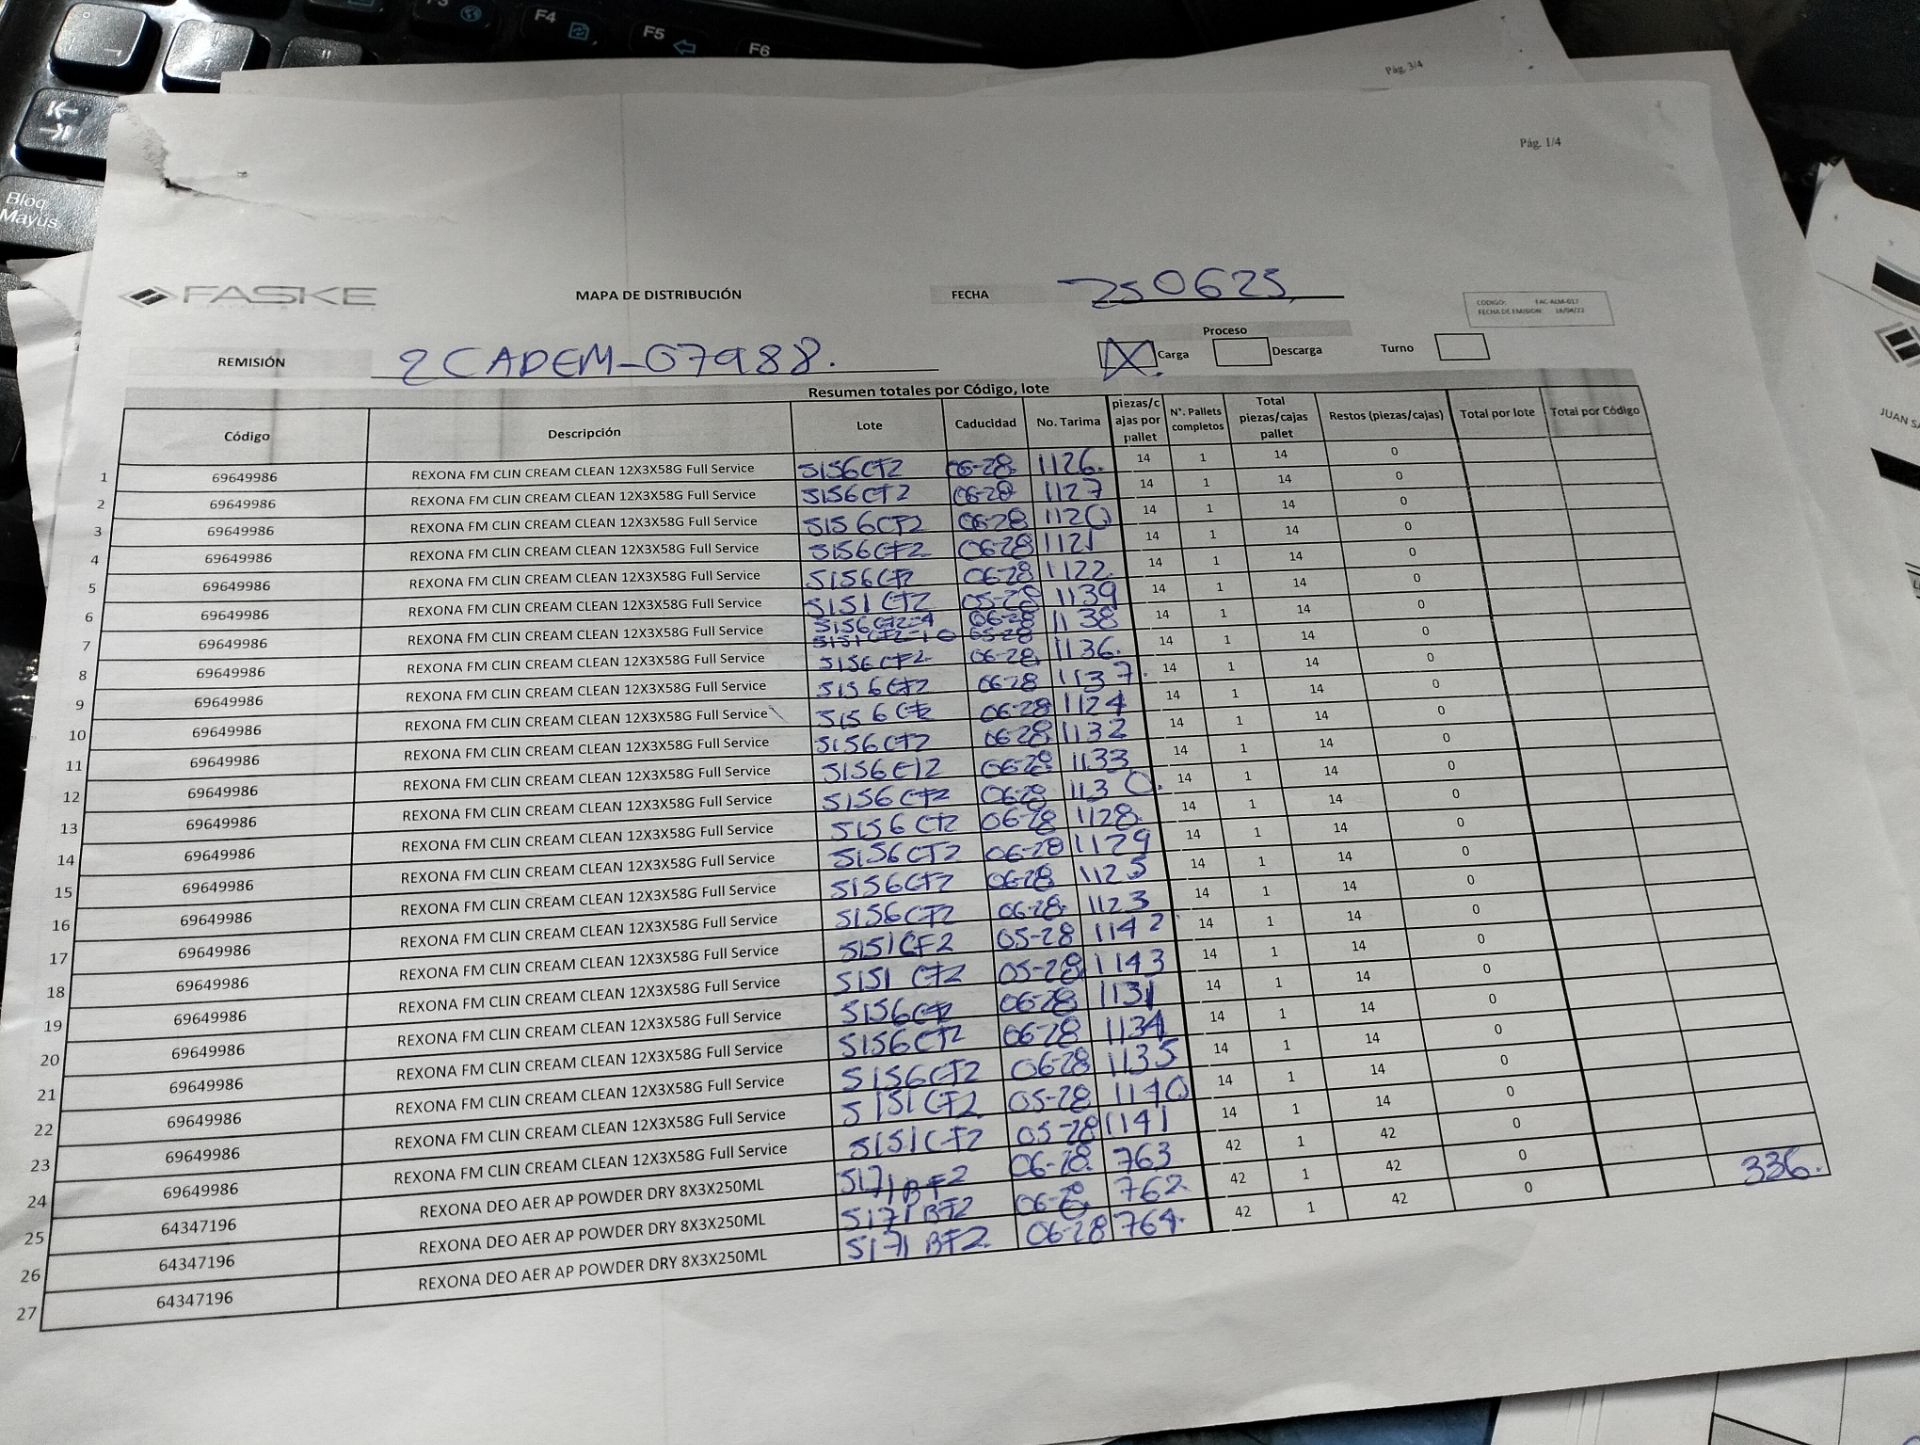 F4
F5
F6
Bloq
Mayús
Pág. 3/4
Pág. 1/4
FASKE
MAPA DE DISTRIBUCIÓN
FECHA 250625
CODIGO: FAC-ALM-017
FECHA DE EMISION: 18/04/22
REMISIÓN 2CADEM-07988.
Proceso
Carga Descarga Turno
Resumen totales por Código, lote
Código Descripción Lote Caducidad No. Tarima piezas/cajas por pallet N°. Pallets completos Total piezas/cajas pallet Restos (piezas/cajas) Total por lote Total por Código
1 69649986 REXONA FM CLIN CREAM CLEAN 12X3X58G Full Service 5156CT2 06-28 1126. 14 1 14 0
2 69649986 REXONA FM CLIN CREAM CLEAN 12X3X58G Full Service 5156CT2 06-28 1127 14 1 14 0
3 69649986 REXONA FM CLIN CREAM CLEAN 12X3X58G Full Service 5156CT2 06-28 1120 14 1 14 0
4 69649986 REXONA FM CLIN CREAM CLEAN 12X3X58G Full Service 5156CT2 06-28 1121 14 1 14 0
5 69649986 REXONA FM CLIN CREAM CLEAN 12X3X58G Full Service 5156CT2 06-28 1122 14 1 14 0
6 69649986 REXONA FM CLIN CREAM CLEAN 12X3X58G Full Service 5151CT2 05-28 1139 14 1 14 0
7 69649986 REXONA FM CLIN CREAM CLEAN 12X3X58G Full Service 5156CT2-4 5151CT2-10 06-28 05-28 1138 14 1 14 0
8 69649986 REXONA FM CLIN CREAM CLEAN 12X3X58G Full Service 5156CT2 06-28 1136. 14 1 14 0
9 69649986 REXONA FM CLIN CREAM CLEAN 12X3X58G Full Service 5156CT2 06-28 1137. 14 1 14 0
10 69649986 REXONA FM CLIN CREAM CLEAN 12X3X58G Full Service 5156CT2 06-28 1124 14 1 14 0
11 69649986 REXONA FM CLIN CREAM CLEAN 12X3X58G Full Service 5156CT2 06-28 1132 14 1 14 0
12 69649986 REXONA FM CLIN CREAM CLEAN 12X3X58G Full Service 5156CT2 06-28 1133 14 1 14 0
13 69649986 REXONA FM CLIN CREAM CLEAN 12X3X58G Full Service 5156CT2 06-28 1130. 14 1 14 0
14 69649986 REXONA FM CLIN CREAM CLEAN 12X3X58G Full Service 5156CT2 06-28 1128. 14 1 14 0
15 69649986 REXONA FM CLIN CREAM CLEAN 12X3X58G Full Service 5156CT2 06-28 1129 14 1 14 0
16 69649986 REXONA FM CLIN CREAM CLEAN 12X3X58G Full Service 5156CT2 06-28 1125 14 1 14 0
17 69649986 REXONA FM CLIN CREAM CLEAN 12X3X58G Full Service 5156CT2 06-28. 1123 14 1 14 0
18 69649986 REXONA FM CLIN CREAM CLEAN 12X3X58G Full Service 5151CT2 05-28 1142 14 1 14 0
19 69649986 REXONA FM CLIN CREAM CLEAN 12X3X58G Full Service 5151 CT2 05-28 1143 14 1 14 0
20 69649986 REXONA FM CLIN CREAM CLEAN 12X3X58G Full Service 5156CT2 06-28 1131 14 1 14 0
21 69649986 REXONA FM CLIN CREAM CLEAN 12X3X58G Full Service 5156CT2 06-28 1134 14 1 14 0
22 69649986 REXONA FM CLIN CREAM CLEAN 12X3X58G Full Service 5156CT2 06-28 1135 14 1 14 0
23 69649986 REXONA FM CLIN CREAM CLEAN 12X3X58G Full Service 5151CT2 05-28 1140 14 1 14 0
24 69649986 REXONA FM CLIN CREAM CLEAN 12X3X58G Full Service 5151CT2 05-28 1141 14 1 14 0 336.
25 64347196 REXONA DEO AER AP POWDER DRY 8X3X250ML 5171BT2 06-28. 763 42 1 42 0
26 64347196 REXONA DEO AER AP POWDER DRY 8X3X250ML 5171BT2 06-28 762. 42 1 42 0
27 64347196 REXONA DEO AER AP POWDER DRY 8X3X250ML 5171 BT2. 06-28 764. 42 1 42 0
JUAN SA